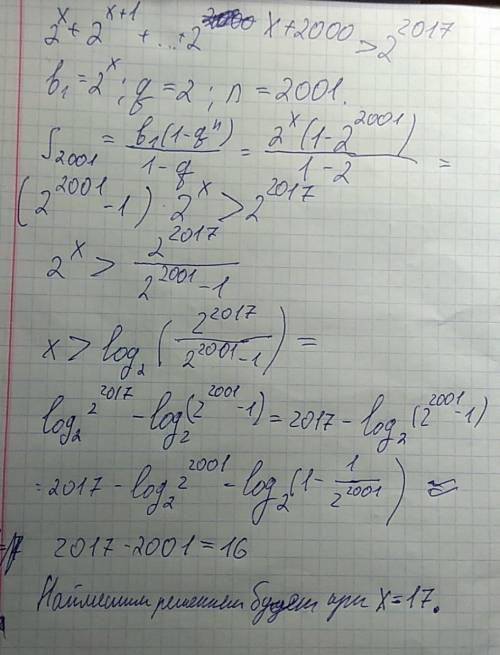 2^x + 2^{x+1} + ... + 2^{x+2000} > 2^{2017}
b₁ = 2^x ; q = 2 ; n = 2001.
S_{2001} = \frac{b₁(1-q^n)}{1-q} = \frac{2^x(1-2^{2001})}{1-2} =
(2^{2001} - 1) · 2^x > 2^{2017}
2^x > \frac{2^{2017}}{2^{2001}-1}
x > log₂ (\frac{2^{2017}}{2^{2001}-1}) =
log₂ 2^{2017} - log₂(2^{2001}-1) = 2017 - log₂(2^{2001}-1)
= 2017 - log₂ 2^{2001} - log₂(1 - \frac{1}{2^{2001}}) ≈
2017 - 2001 = 16
Наименьшим решением будет при x = 17.